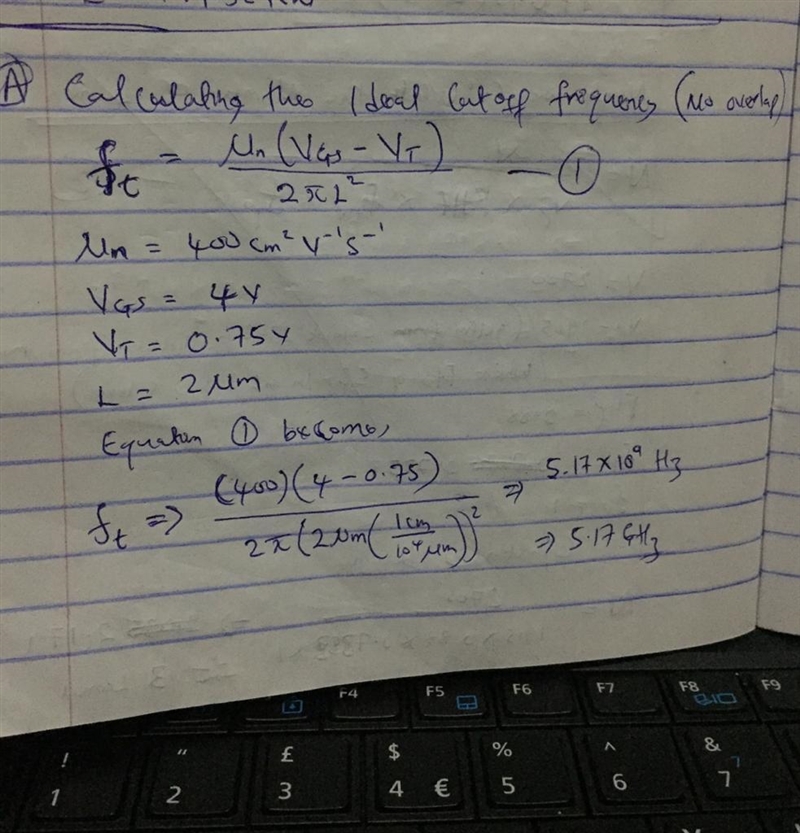 A) Calculating the Ideal Cutoff frequency (No overlap)
f_t = μn (VGS − VT) / 2πL² — ①
μn = 400 cm² V⁻¹ s⁻¹
VGS = 4V
VT = 0.75V
L = 2 μm
Equation ① becomes,
f_t ⇒ (400)(4 − 0.75) / 2π(2μm(1cm / 10⁴ μm))² ⇒ 5.17 × 10⁹ Hz
⇒ 5.17 GHz
F4 F5 F6 F7 F8 F9
! " £ $ % ^ & 7
1 2 3 4 € 5 6 7